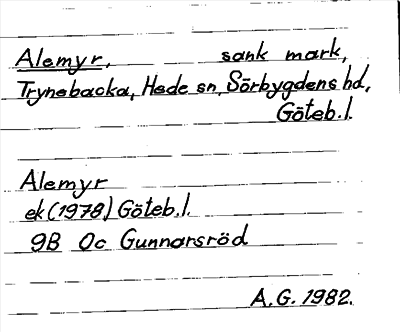 Alemyr, sank mark,
Trynebacka, Hede sn, Sörbygdens hd,
Göteb.l.
Alemyr
ek (1978) Göteb.l.
9B 0c Gunnarsröd
A.G. 1982.